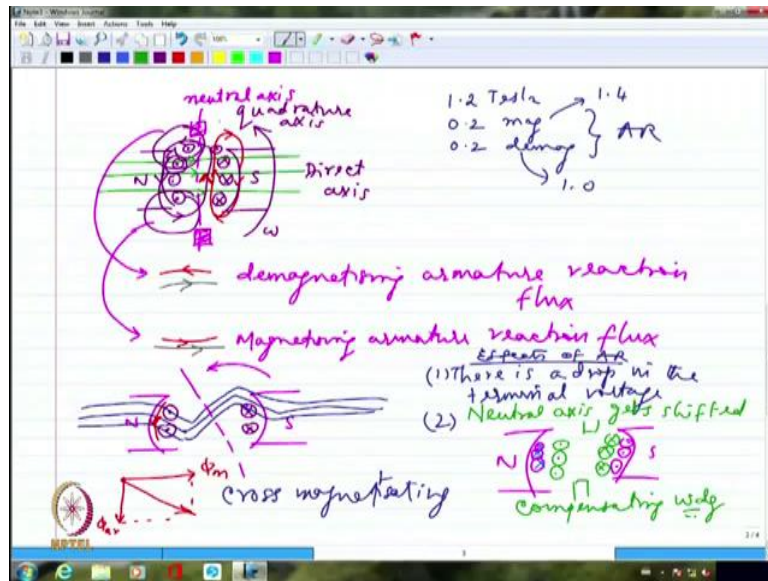 Note1 - Windows Journal
File Edit View Insert Actions Tools Help
neutral axis
quadrature
axis
1.2 Tesla
1.4
0.2 mag
AR
0.2 demag
1.0
N
S
Direct
axis
ω
demagnetising armature reaction
flux
Magnetising armature reaction flux
Effects of AR
(1) There is a drop in the
terminal voltage
(2) Neutral axis gets shifted
N
S
N
S
Φm
Φar
cross magnetising
compensating wdg
NPTEL